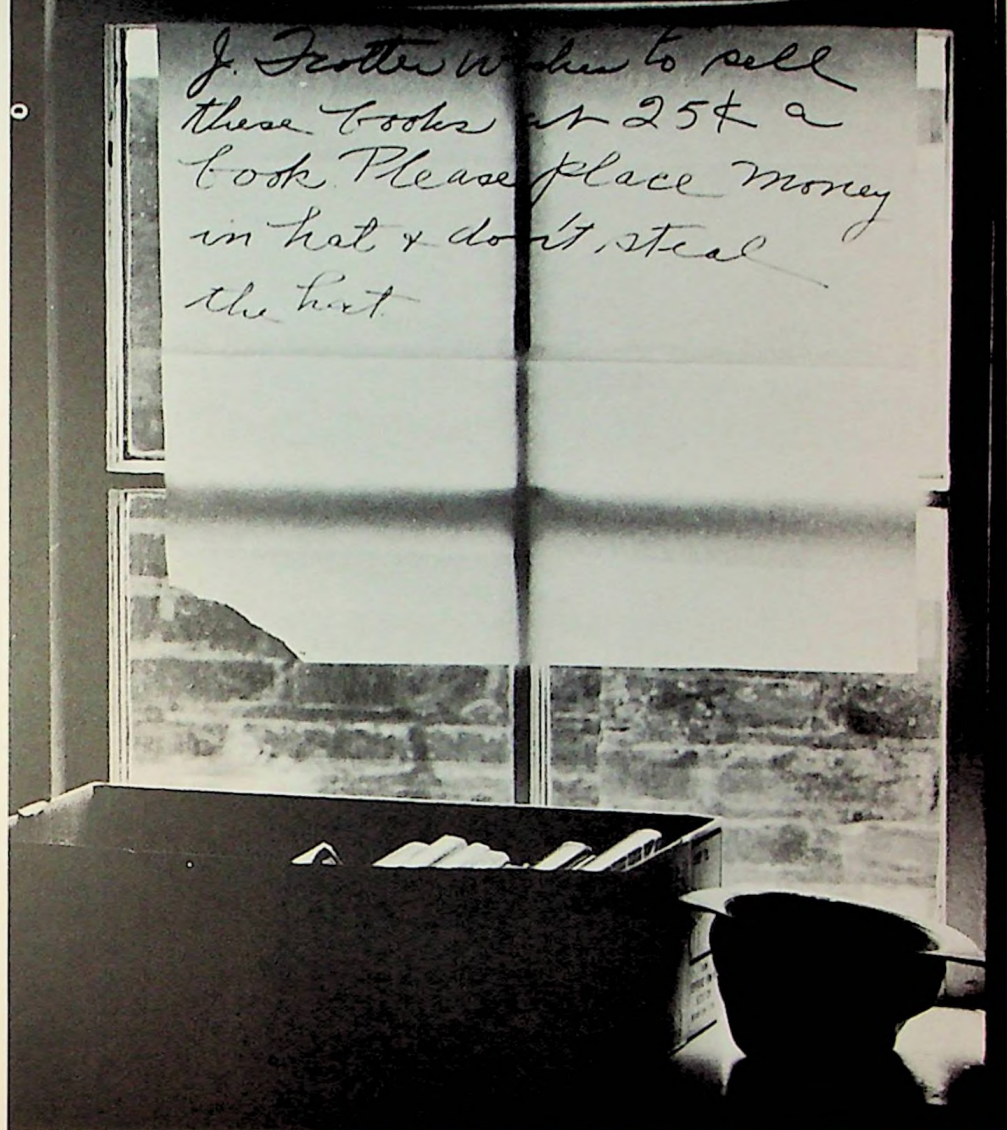 J. Trotter wishes to sell
these books at 25¢ a
book. Please place money
in hat & don't steal
the hat.